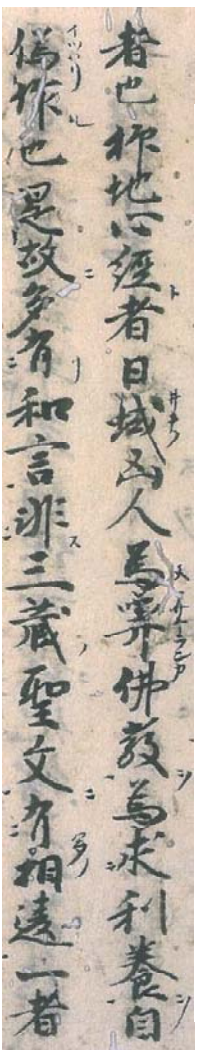 者也称地心經者日域凶人為弄佛教為求利養自
偽作也是故多有和言非三蔵聖文有相違一者